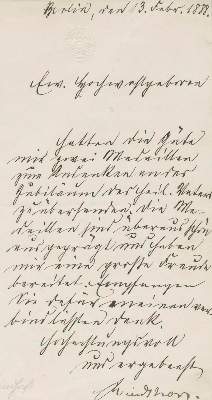 Berlin, den 13. Febr. 1888.
Ew. Hochwohlgeboren
hatten die Güte
mir zwei Medaillen
zum Andenken an das
Jubiläum des heil. Vaters
zu übersenden. Die Me-
daillen sind überaus schön
ausgeprägt und haben
mir eine große Freude
bereitet. Empfangen
Sie dafür meinen ver-
bindlichsten Dank.
Hochachtungsvoll
und ergebenst
Windthorst